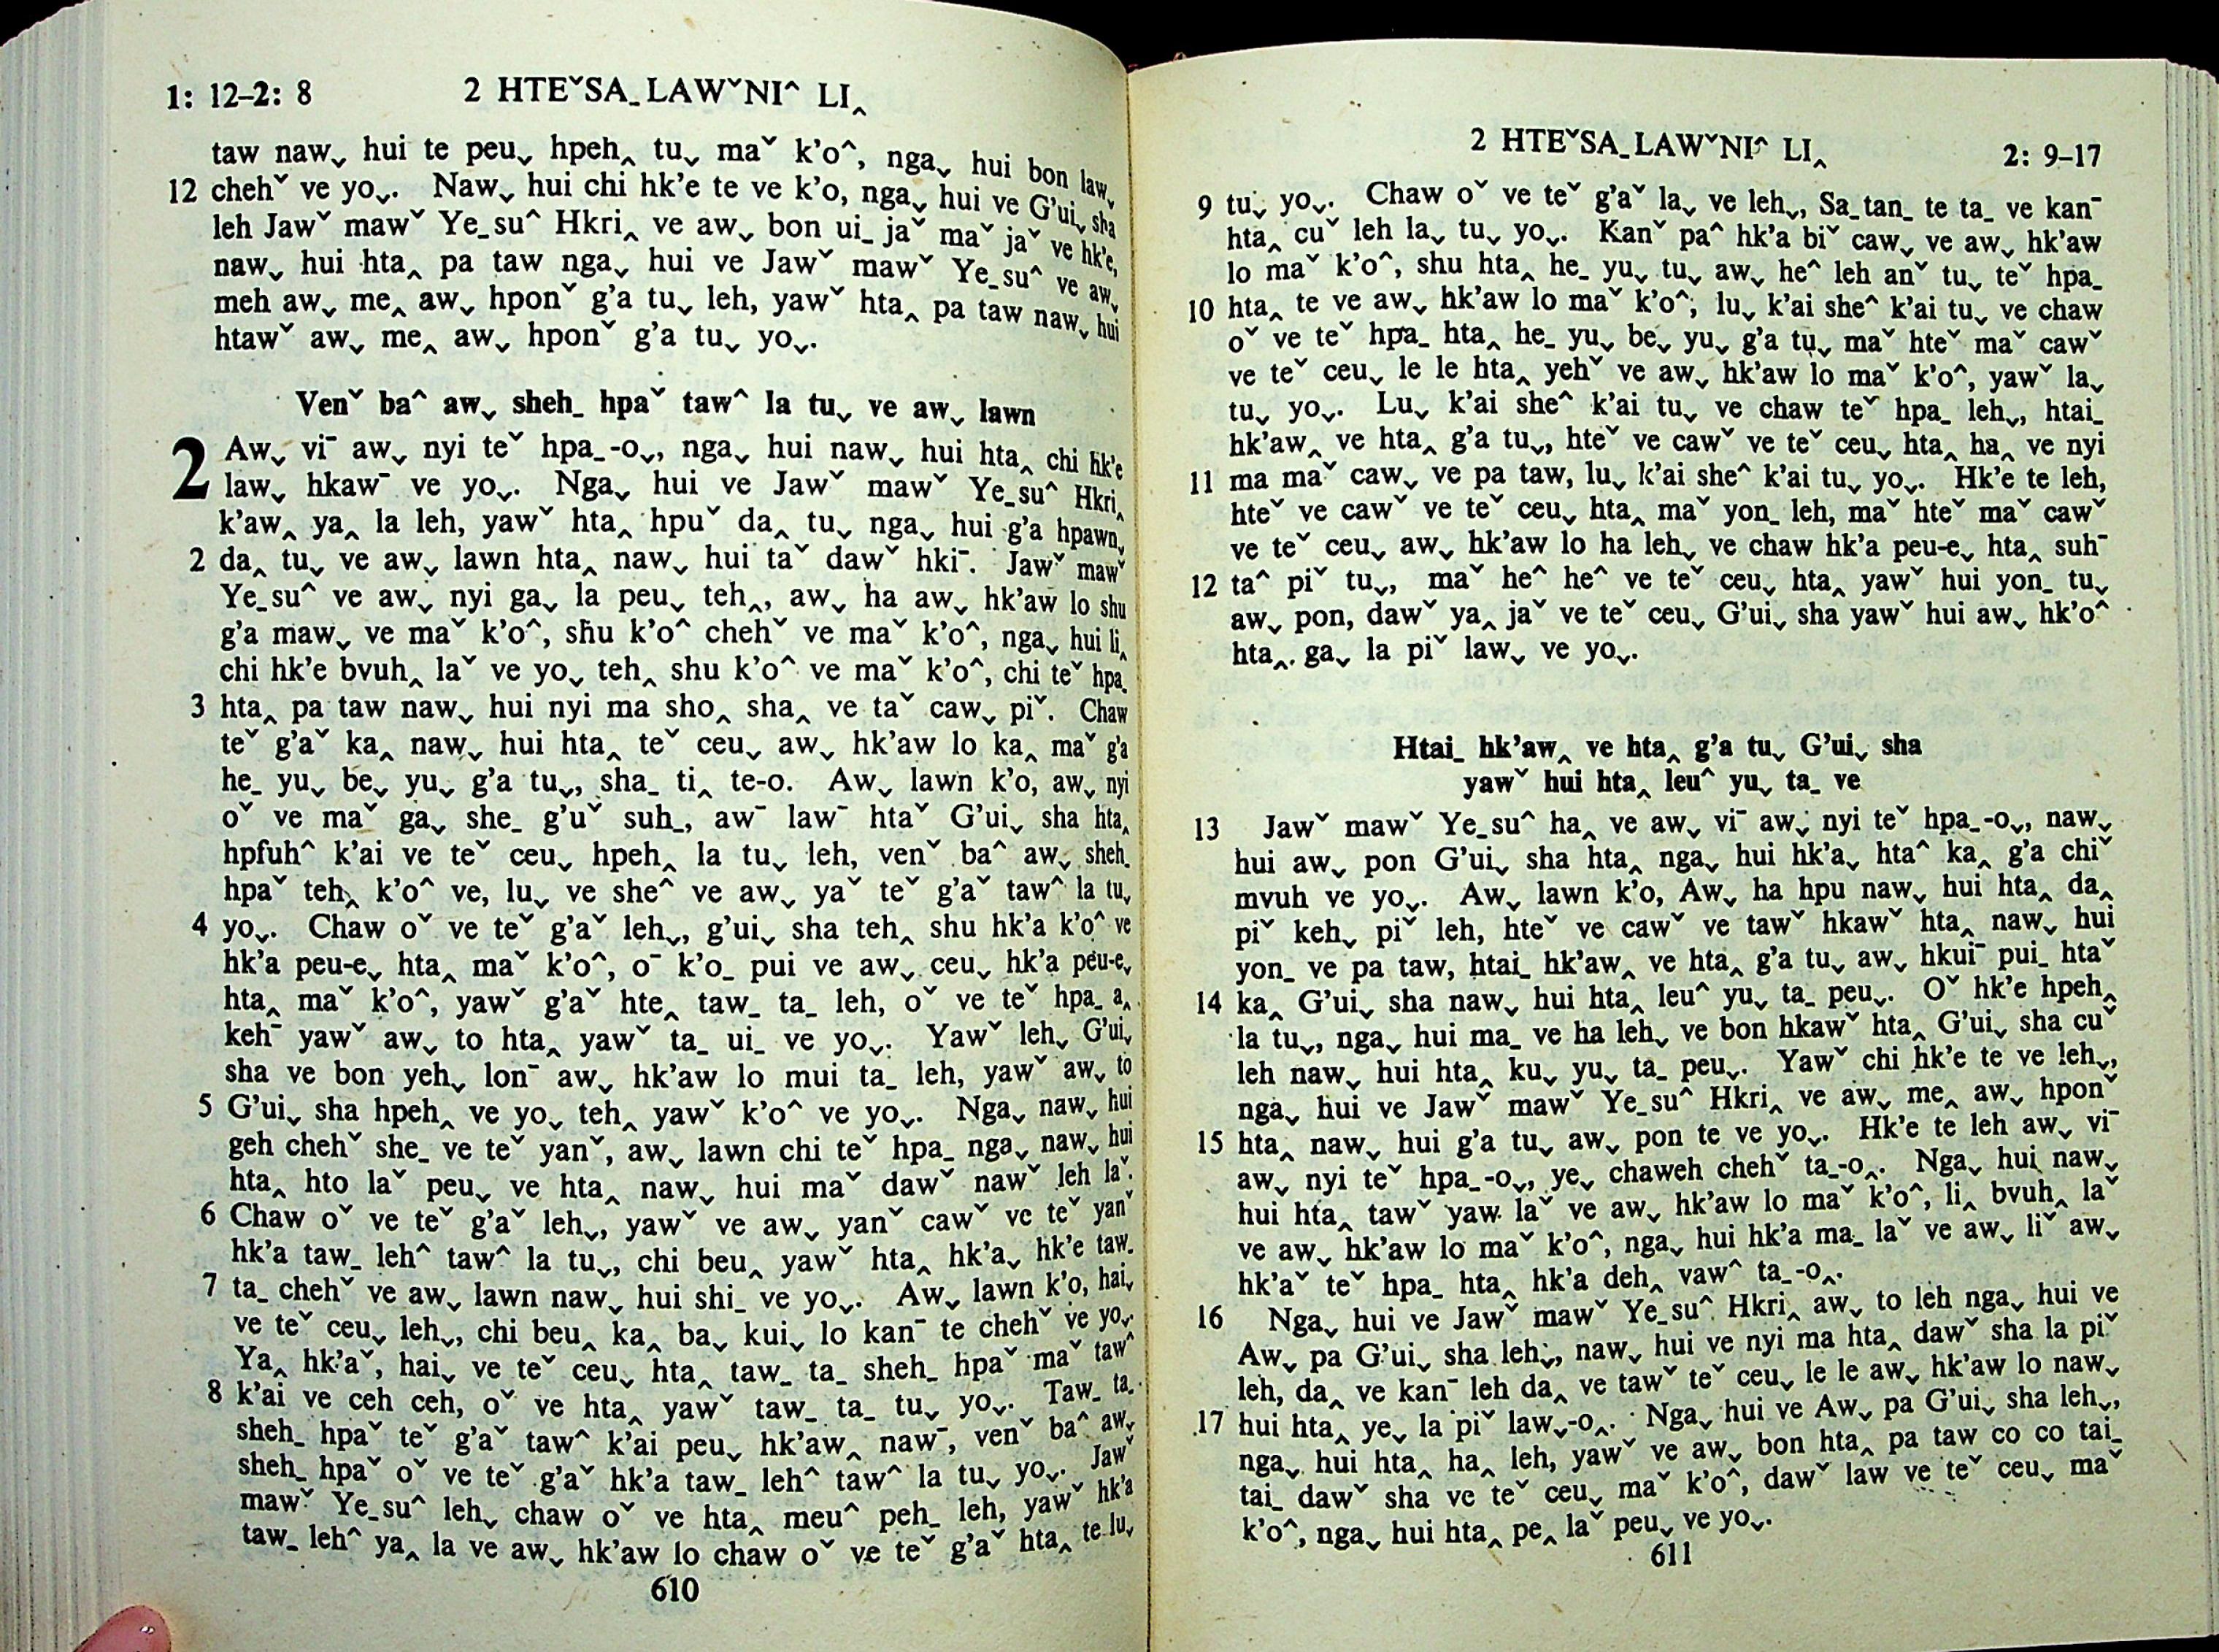 1: 12–2: 8 2 HTEˇSAˍLAWˇNIˆ LI‸
taw naw⌄ hui te peu⌄ hpeh‸ tu⌄ maˇ k'oˆ, nga⌄ hui bon law⌄
12 chehˇ ve yo⌄. Naw⌄ hui chi hk'e te ve k'o, nga⌄ hui ve G'ui⌄ sha
leh Jawˇ mawˇ Yeˍsuˆ Hkri‸ ve aw⌄ bon uiˍ jaˇ maˇ jaˇ ve hk'e,
naw⌄ hui hta‸ pa taw nga⌄ hui ve Jawˇ mawˇ Yeˍsuˆ ve aw⌄
meh aw⌄ me‸ aw⌄ hponˇ g'a tu⌄ leh, yawˇ hta‸ pa taw naw⌄ hui
htawˇ aw⌄ me‸ aw⌄ hponˇ g'a tu⌄ yo⌄.
Venˇ baˆ aw⌄ shehˍ hpaˇ tawˆ la tu⌄ ve aw⌄ lawn
2 Aw⌄ viˉ aw⌄ nyi teˇ hpaˍ-o⌄, nga⌄ hui naw⌄ hui hta‸ chi hk'e
law⌄ hkawˉ ve yo⌄. Nga⌄ hui ve Jawˇ mawˇ Yeˍsuˆ Hkri‸
k'aw‸ ya‸ la leh, yawˇ hta‸ hpuˇ da‸ tu⌄ nga⌄ hui g'a hpawn⌄
2 da‸ tu⌄ ve aw⌄ lawn hta‸ naw⌄ hui taˇ dawˇ hkiˉ. Jawˇ mawˇ
Yeˍsuˆ ve aw⌄ nyi ga⌄ la peu⌄ teh‸, aw⌄ ha aw⌄ hk'aw lo shu
g'a maw⌄ ve maˇ k'oˆ, shu k'oˆ chehˇ ve maˇ k'oˆ, nga⌄ hui li‸
chi hk'e bvuh‸ laˇ ve yo⌄ teh‸ shu k'oˆ ve maˇ k'oˆ, chi teˇ hpaˍ
3 hta‸ pa taw naw⌄ hui nyi ma sho‸ sha‸ ve taˇ caw⌄ piˇ. Chaw
teˇ g'aˇ ka‸ naw⌄ hui hta‸ teˇ ceu⌄ aw⌄ hk'aw lo ka‸ maˇ g'a
heˍ yu⌄ be⌄ yu⌄ g'a tu⌄, shaˍ ti‸ te-o. Aw⌄ lawn k'o, aw⌄ nyi
oˇ ve maˇ ga⌄ sheˍ g'uˇ suhˍ, awˉ lawˉ htaˇ G'ui⌄ sha hta‸
hpfuhˆ k'ai ve teˇ ceu⌄ hpeh‸ la tu⌄ leh, venˇ baˆ aw⌄ shehˍ
hpaˇ teh‸ k'oˆ ve, lu⌄ ve sheˆ ve aw⌄ yaˇ teˇ g'aˇ tawˆ la tu⌄
4 yo⌄. Chaw oˇ ve teˇ g'aˇ leh⌄, g'ui⌄ sha teh‸ shu hk'a k'oˆ ve
hk'a peu-e⌄ hta‸ maˇ k'oˆ, oˉ k'oˍ pui ve aw⌄ ceu⌄ hk'a peu-e⌄
hta‸ maˇ k'oˆ, yawˇ g'aˇ hte‸ tawˍ taˍ leh, oˇ ve teˇ hpaˍ a‸
kehˉ yawˇ aw⌄ to hta‸ yawˇ taˍ uiˍ ve yo⌄. Yawˇ leh⌄ G'ui⌄
sha ve bon yeh⌄ lonˉ aw⌄ hk'aw lo mui taˍ leh, yawˇ aw⌄ to
5 G'ui⌄ sha hpeh‸ ve yo⌄ teh‸ yawˇ k'oˆ ve yo⌄. Nga⌄ naw⌄ hui
geh chehˇ sheˍ ve teˇ yanˇ, aw⌄ lawn chi teˇ hpaˍ nga⌄ naw⌄ hui
hta‸ hto laˇ peu⌄ ve hta‸ naw⌄ hui maˇ dawˇ nawˇ leh laˇ.
6 Chaw oˇ ve teˇ g'aˇ leh⌄, yawˇ ve aw⌄ yanˇ cawˇ ve teˇ yanˇ
hk'a tawˍ lehˆ tawˆ la tu⌄, chi beu‸ yawˇ hta‸ hk'a⌄ hk'e tawˍ
7 taˍ chehˇ ve aw⌄ lawn naw⌄ hui shiˍ ve yo⌄. Aw⌄ lawn k'o, hai⌄
ve teˇ ceu⌄ leh⌄, chi beu‸ ka‸ ba⌄ kui⌄ lo kanˉ te chehˇ ve yo⌄.
Ya‸ hk'aˇ, hai⌄ ve teˇ ceu⌄ hta‸ tawˍ taˍ shehˍ hpaˇ maˇ tawˆ
8 k'ai ve ceh ceh, oˇ ve hta‸ yawˇ tawˍ taˍ tu⌄ yo⌄. Tawˍ taˍ
shehˍ hpaˇ teˇ g'aˇ tawˆ k'ai peu⌄ hk'aw‸ nawˉ, venˇ baˆ aw⌄
shehˍ hpaˇ oˇ ve teˇ g'aˇ hk'a tawˍ lehˆ tawˆ la tu⌄ yo⌄. Jawˇ
mawˇ Yeˍsuˆ leh⌄ chaw oˇ ve hta‸ meuˆ pehˍ leh, yawˇ hk'a
tawˍ lehˆ ya‸ la ve aw⌄ hk'aw lo chaw oˇ ve teˇ g'aˇ hta‸ te lu⌄
610
2 HTEˇSAˍLAWˇNIˆ LI‸ 2: 9–17
9 tu⌄ yo⌄. Chaw oˇ ve teˇ g'aˇ la⌄ ve leh⌄, Saˍtanˍ te taˍ ve kanˉ
hta‸ cuˇ leh la⌄ tu⌄ yo⌄. Kanˇ paˆ hk'a biˇ caw⌄ ve aw⌄ hk'aw
lo maˇ k'oˆ, shu hta‸ heˍ yu⌄ tu⌄ aw⌄ heˆ leh anˇ tu⌄ teˇ hpaˍ
10 hta‸ te ve aw⌄ hk'aw lo maˇ k'oˆ; lu⌄ k'ai sheˆ k'ai tu⌄ ve chaw
oˇ ve teˇ hpaˍ hta‸ heˍ yu⌄ be⌄ yu⌄ g'a tu⌄ maˇ hteˇ maˇ cawˇ
ve teˇ ceu⌄ le le hta‸ yehˇ ve aw⌄ hk'aw lo maˇ k'oˆ, yawˇ la⌄
tu⌄ yo⌄. Lu⌄ k'ai sheˆ k'ai tu⌄ ve chaw teˇ hpaˍ leh⌄, htaiˍ
hk'aw‸ ve hta‸ g'a tu⌄, hteˇ ve cawˇ ve teˇ ceu⌄ hta‸ ha‸ ve nyi
11 ma maˇ caw⌄ ve pa taw, lu⌄ k'ai sheˆ k'ai tu⌄ yo⌄. Hk'e te leh,
hteˇ ve cawˇ ve teˇ ceu⌄ hta‸ maˇ yonˍ leh, maˇ hteˇ maˇ cawˇ
ve teˇ ceu⌄ aw⌄ hk'aw lo ha leh⌄ ve chaw hk'a peu-e⌄ hta‸ suhˉ
12 taˆ piˇ tu⌄, maˇ heˆ heˆ ve teˇ ceu⌄ hta‸ yawˇ hui yonˍ tu⌄
aw⌄ pon, dawˇ ya‸ jaˇ ve teˇ ceu⌄ G'ui⌄ sha yawˇ hui aw⌄ hk'oˆ
hta‸ ga⌄ la piˇ law⌄ ve yo⌄.
Htaiˍ hk'aw‸ ve hta‸ g'a tu⌄ G'ui⌄ sha
yawˇ hui hta‸ leuˆ yu⌄ taˍ ve
13 Jawˇ mawˇ Yeˍsuˆ ha‸ ve aw⌄ viˉ aw⌄ nyi teˇ hpaˍ-o⌄, naw⌄
hui aw⌄ pon G'ui⌄ sha hta‸ nga⌄ hui hk'a⌄ htaˆ ka‸ g'a chiˇ
mvuh ve yo⌄. Aw⌄ lawn k'o, Aw⌄ ha hpu naw⌄ hui hta‸ da‸
piˇ keh⌄ piˇ leh, hteˇ ve cawˇ ve tawˇ hkawˇ hta‸ naw⌄ hui
yonˍ ve pa taw, htaiˍ hk'aw‸ ve hta‸ g'a tu⌄ aw⌄ hkuiˉ puiˍ htaˇ
14 ka‸ G'ui⌄ sha naw⌄ hui hta‸ leuˆ yu⌄ taˍ peu⌄. Oˇ hk'e hpeh‸
la tu⌄, nga⌄ hui maˍ ve ha leh⌄ ve bon hkawˇ hta‸ G'ui⌄ sha cuˇ
leh naw⌄ hui hta‸ ku⌄ yu⌄ taˍ peu⌄. Yawˇ chi hk'e te ve leh⌄,
nga⌄ hui ve Jawˇ mawˇ Yeˍsuˆ Hkri‸ ve aw⌄ me‸ aw⌄ hponˇ
15 hta‸ naw⌄ hui g'a tu⌄ aw⌄ pon te ve yo⌄. Hk'e te leh aw⌄ viˉ
aw⌄ nyi teˇ hpaˍ-o⌄, ye⌄ chaweh chehˇ taˍ-o‸. Nga⌄ hui naw⌄
hui hta‸ tawˇ yaw laˇ ve aw⌄ hk'aw lo maˇ k'oˆ, li‸ bvuh‸ laˇ
ve aw⌄ hk'aw lo maˇ k'oˆ, nga⌄ hui hk'a maˍ laˇ ve aw⌄ liˇ aw⌄
hk'aˇ teˇ hpaˍ hta‸ hk'a deh‸ vawˆ taˍ-o‸.
16 Nga⌄ hui ve Jawˇ mawˇ Yeˍsuˆ Hkri‸ aw⌄ to leh nga⌄ hui ve
Aw⌄ pa G'ui⌄ sha leh⌄, naw⌄ hui ve nyi ma hta‸ dawˇ sha la piˇ
leh, da‸ ve kanˉ leh da‸ ve tawˇ teˇ ceu⌄ le le aw⌄ hk'aw lo naw⌄
17 hui hta‸ ye⌄ la piˇ law⌄-o‸. Nga⌄ hui ve Aw⌄ pa G'ui⌄ sha leh⌄,
nga⌄ hui hta‸ ha‸ leh, yawˇ ve aw⌄ bon hta‸ pa taw co co taiˍ
taiˍ dawˇ sha ve teˇ ceu⌄ maˇ k'oˆ, dawˇ law ve teˇ ceu⌄ maˇ
k'oˆ, nga⌄ hui hta‸ pe‸ laˇ peu⌄ ve yo⌄.
611